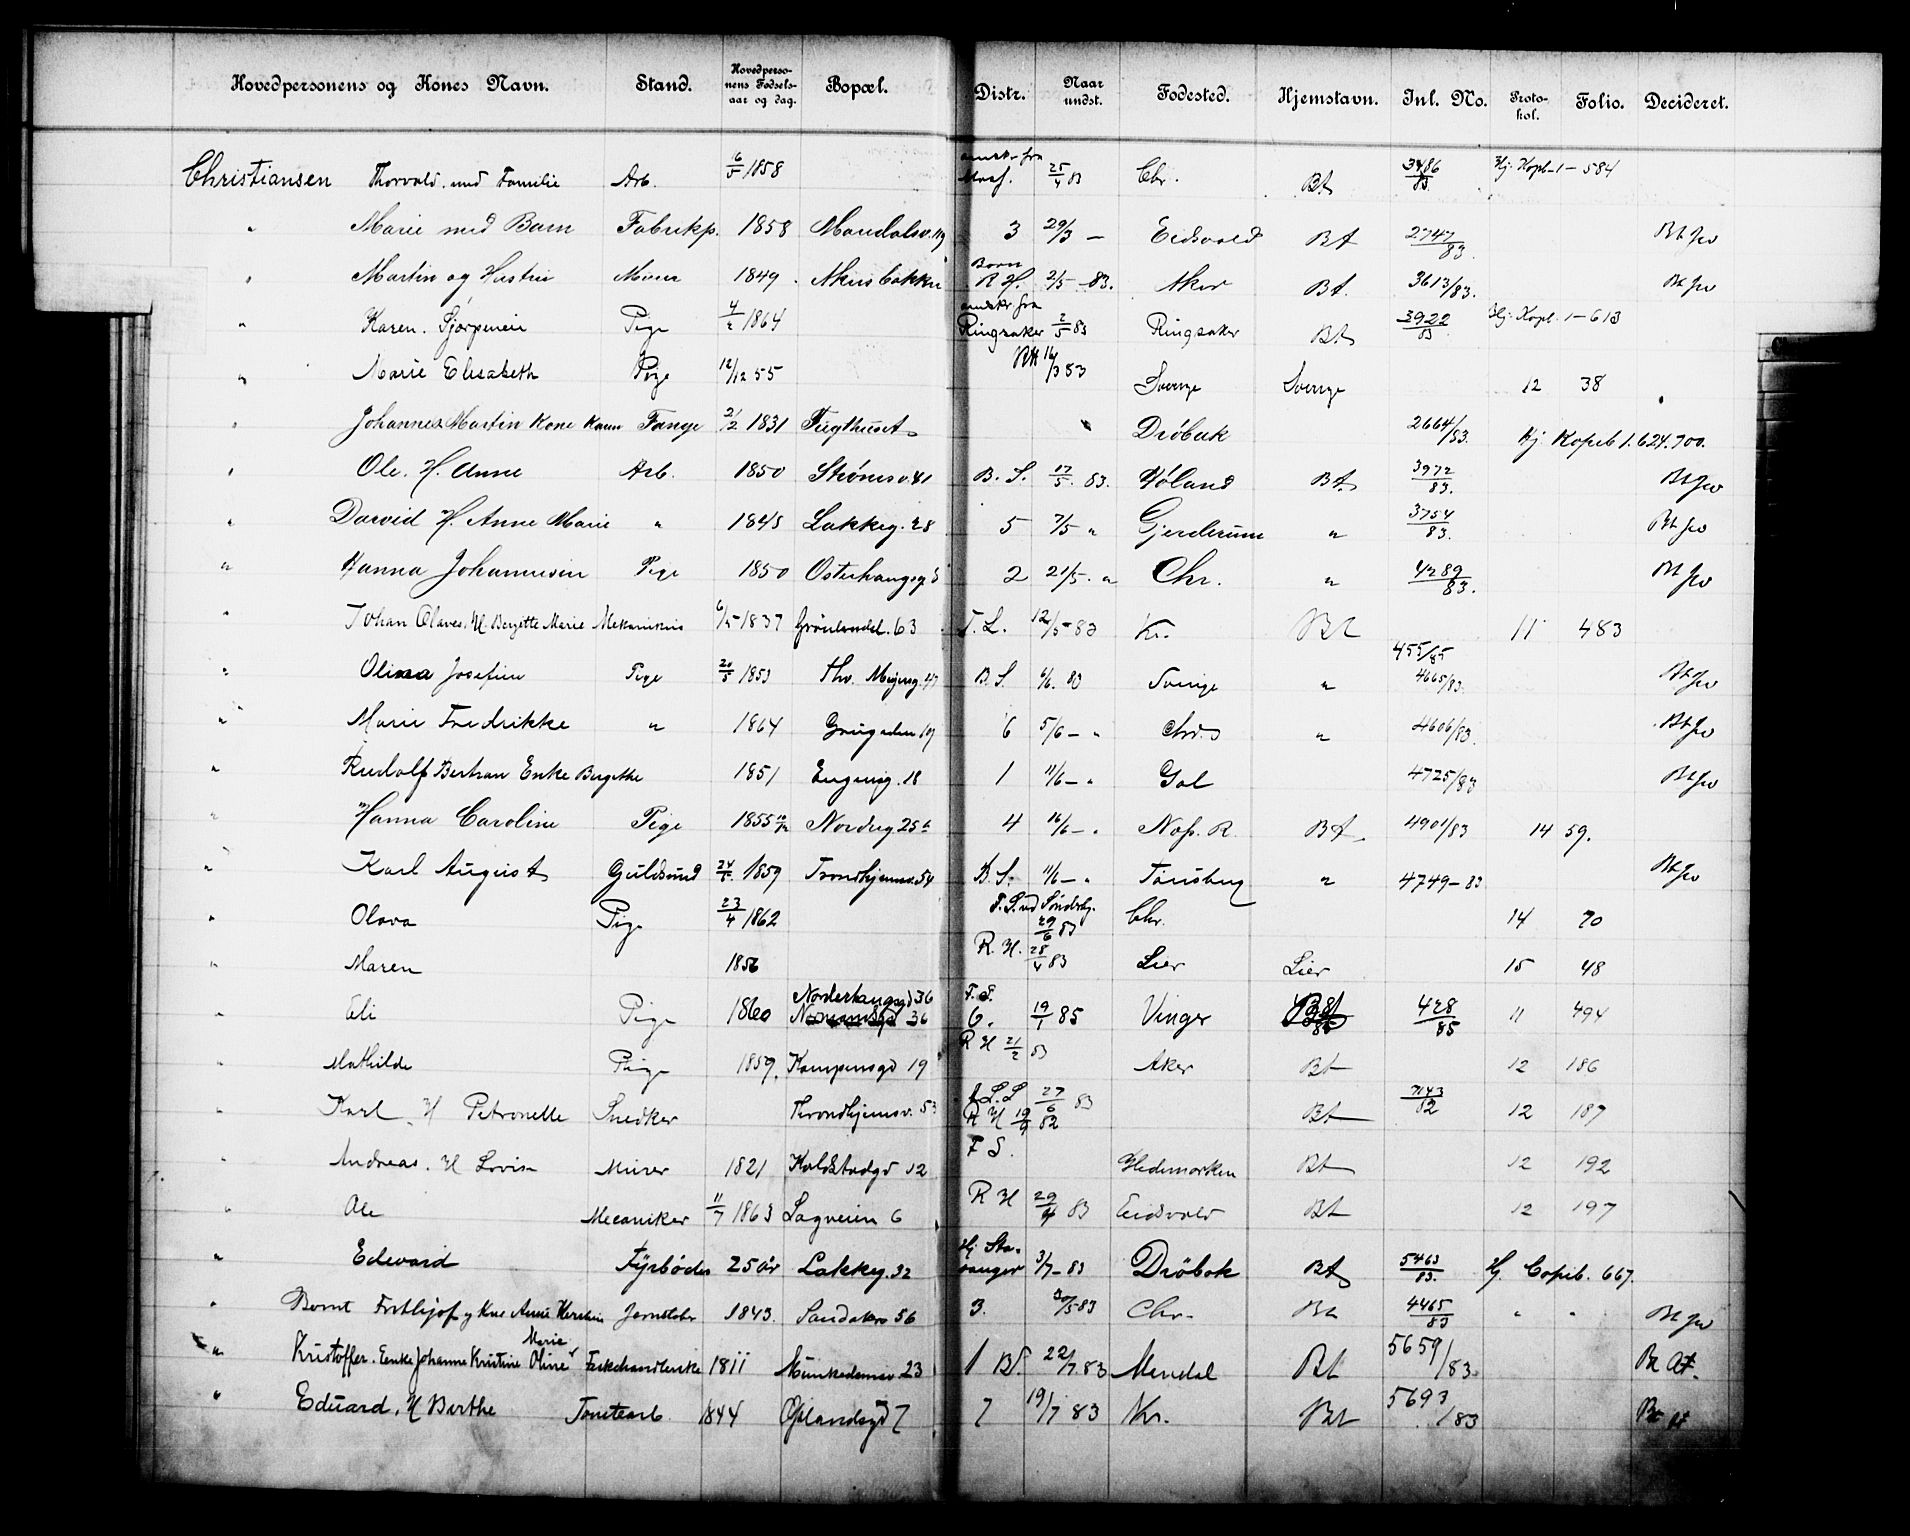 Hovedpersonens og Kones Navn. Stand. Hovedperso-nens Fødsels-aar og dag. Bopæl. Distr. Naar undst. Fødested. Hjemstavn. Inl. No. Proto-kol. Folio. Decideret.
Christiansen Thorvald med Familie Arb. 6/5 1858 fra 25/4 83 Chr. Bt 3486/83 Hj. Kopb. 1 - 584
" Marie med Barn Fabrikp. 1858 Maridalsv. 3 29/3 - Eidsvold Bt 2747/83. Bt
" Martin og Hustru Murer 1849 Akersbakken R.H. 2/5 - 83. Aker Bt. 3613/83. Bt
" Karen Pige 4/2 1864 fra Ringsaker 2/5 83 Ringsaker Bt 3922/83 Hj. Kopb. 1 - 613
" Marie Elisabeth Pige 12/12 55 16/3 83 Sverige Sverige 12 38
" Johannes Martin Kone Karen Fange 2/2 1831 Tugthuset Drøbak 2664/83. Hj. Kopieb 1. 624. 700.
" Ole. H. Anne Arb. 1850 Strømsv. 41 B. S. 17/5. 83. Høland Bt. 3972/83. Bt
" Darvid H. Anne Marie " 1845 Lakkeg. 28 5 7/5 " Gjerderum " 3754/83. Bt
" Hanna Johannesen Pige 1850 Osterhausg 5 2 21/5. " Chr. " 4289/83. Bt
" Johan Olaves. H Bergitte Marie 1837 Grønlandsl. 63 T. L. 12/5 83 Kr. Bt 11 483
455/85
" Olina Josefine Pige 20/5 1853 Thv. Meyersg. 47 B. S. 4/6. 83 Sverige " 4665/83. Bt
" Marie Fredrikke " 1864 19 6 5/6 - " Chr. " 4606/83. Bt
" Rudolf Bertran Enke Bergithe 1851 Engensg. 18 1 11/6 - " Gol 4725/83 Bt
" Hanna Caroline Pige 1855 Nordreg 25 b 4 16/6 - " Bt 4901/83 14 59.
" Karl August Guldsmed 1859 Trondhjemsv. 54 B. S. 11/6 - " Tønsberg " 4749 - 83 Bt
" Olava Pige 23/4 1862 29/6 83 Chr. 14 70
" Maren 1856 R. H. 28/4 83 Lier Lier 15 48
" Eli Pige 1860 36 6. 19/1 85 Vinger 428/85 11 494
" Mathilde Pige 1859. Kampensgd 19 R H 21/2 83 Aker Bt 12 186
" Karl. H Petronelle Snedker Throndhjemsv. 53 27/6 83 R H 19/9 82 Bt 7143/82 12 187
" Andreas. H Lovise Murer 1821 12 F S. Hedemarken Bt 12 192
" Ole Mecaniker 11/7 1863 Sagveien 6 R H 83 Eidsvold Bt 12 197
" Edevard Fyrbøder 25 år Lakkeg. 32 Hj. Stavanger 3/7 - 83 Drøbak Bt 5463/83. Hj. Copieb. 667.
" Bernt Frithjof og Kone Anne 1843. Sandakerv 56 3. 83 Chr. Bt 4465/83 " " Bt
" Kristoffer. Enke Johanne Kristine Oline Marie 1811 Munkedamsv. 23 1 Bt. 22/7 83 Mandal Bt 5659/83.
" Eduard. H Berthe 1844 Oplandsgd 7 7 19/7 83 Kr. Bt 5693/83